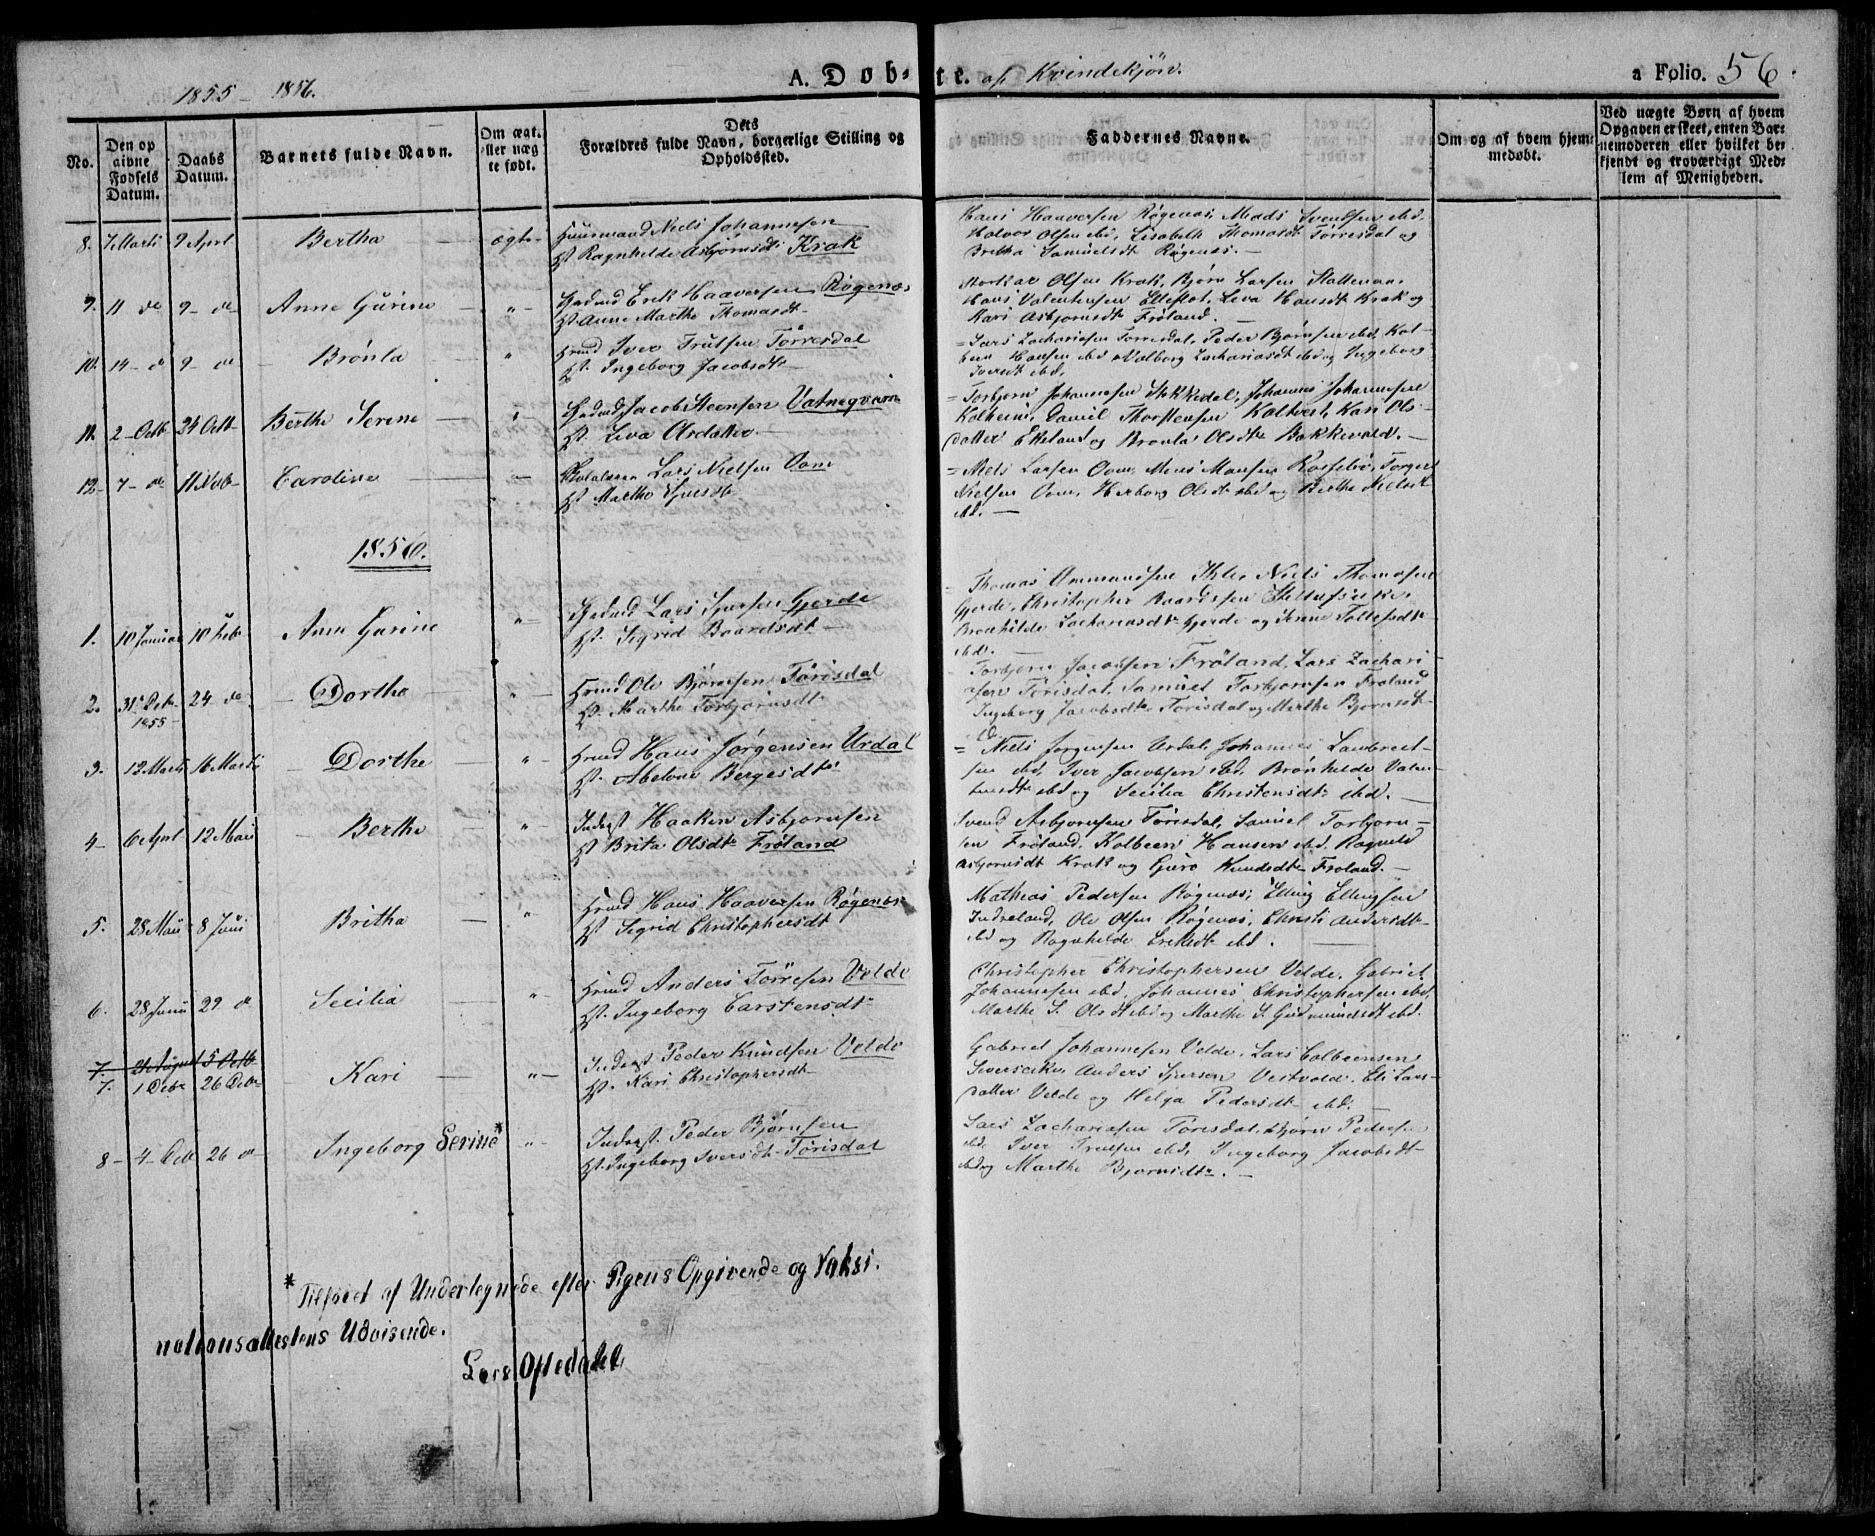 1855 - 1856.
A. Døbte. af Kvindekjön.
a Folio. 56.
No.
Den op
givne
Fødsels
Datum.
Daabs
Datum.
Barnets fulde Navn.
Om ægt.
eller uæg
te født.
Dets
Forældres fulde Navn, borgerlige Stilling og
Opholdssted.
Faddernes Navne.
Om og af hvem hjem-
medøbt.
Ved uægte Børn af hvem
Opgaven er skeet, enten Bar-
nemoderen eller hvilket be-
kjendt og troværdigt Med-
lem af Menigheden.
8. 7 Marti 9 April Bertha - ægte - Huusmand Niels Johannesen
Hst Ragnhilde Asbjörnsdt Krak
Hans Haaversen Røgenæs, Mads Svendsen ibd.
Halvor Olsen ibd, Lisabeth Thomasdt Torresdal og
Bretha Samuelsdt Røgenæs. -
9. 11 do 9 - do Anne Gurine - " - Erik Haaversen Røgenæs
Hst. Anne Marthe Thomasdt -
Storkar Olsen Krak, Björn Larsen
Hans Valentinsen Ellestot, Leva Hansdt Krak og
Kari Asbjornsdt Frøland. -
10. 14 - do 9 - do - Brönla " Hmd Iver Trulsen Törresdal
Hst. Ingeborg Jacobsdt -
= Lars Zachariasen Torresdal, Peder Bjørnsen ibd, Kol-
been Hansen ibd Valborg Zachariasdt ibd og Ingeborg
Iversdt ibd,
11. 2 - Octb 24 Octb Berthe Serene - " - Jacob Steensen Vatneqvarn
Hst. Leva Olsdatter -
= Torbjørn Johannesen Stokkedal, Johannes Johannesen
Kolheim, Daniel Thorstensen Kaltvest, Kari Ols-
datter Ekeland og Bronla Olsdtr Bakkevold. -
12 - 7 - do 11 Nob - Caroline - Lars Nielsen Oom
Hst Marthe
= Niels Larsen Oom, Mons Monsen Torger
Nielsen Oom, Herborg Olsdt ibd og Berthe Nielsdt
ibd. -
1856.
1. 10 Januar 10 Feb Ann Gurine " - Lars Sjursen Gjerde
Hst. Sigrid Baardsdt -
= Thomas Ommundsen Niels Thomasen
Gjerde, Christopher Baardsen
Brønhilde Zachariasdt Gjerde og Serene Tollefsdt
ibd. -
2. 31 Dcbr 24 do, - Dortha - " - Hmd Ole Bjørnsen Törisdal
1855 -
Hst. Marthe Torbjørnsdt -
Torbjørn Jacobsen Frøland, Lars Zachari
asen Törisdal, Samuel Torbjornsen Frøland
Ingeborg Jacobsdt Törisdal og Marthe Bjørnsdt
ibd.
3. 12 Marti 16 Marti - Dorthe " - Hmd Hans Jørgensen Urdal
Hst. Abelone Bergesdtr
= Niels Jorgensen Urdal, Johannes Lambrect-
sen ibd, Iver Jacobsen ibd, Brønhilde Valen-
tinsdt ibd og Secilia Christensdtr ibd. -
4 - 6 Aprl 12 Mai - Berthe " - Inderst Haaken Asbjornsen
Hst Brita Olsdtr Frøland
Svend Asbjornsen Törisdal, Samuel Torbjorn-
sen Frøland, Kolbeen Hansen ibd. Ragnild
Asbjornsdt Krak og Guro Knudsdtr Froland. -
5. 28 Mai 8 Juni Bretha - " Hmd Hans Haaversen Røgenæs
Hst Sigrid Christophersdt
Mathias Pedersen Røgenæs, Elling Ellingsen
Indreland, Ole Olsen Røgenæs, Christi Andersdt
ibd og Ragnhilde Ereksdt ibd.
6. 28 Juni 29 do Secilia - " - Hmd Anders Törresen Velde
Hst. Ingeborg Carstensdtr
Christopher Christophersen Velde, Gabriel
Johannesen ibd, Johannes Christophersen ibd,
Marthe S. Olsdt ibd og Marthe S. Gudmundsdt ibd.
7. 21 August 5 Octb
7. 1 Octbr 26 Octbr - Kari - " - Inderst Peder Knudsen Velde
Hst. Kari Christophersdt -
Gabriel Johannesen Velde, Lars Colbeensen
Anders Sjursen Vestvold, Eli Lars-
datter Velde og Helga Pedersdtr ibd. -
8 - 4 - Octb 26 do Ingeborg Serine* " - Inderst. Peder Bjørnsen
Hst. Ingeborg Iversdtr Törisdal
Lars Zachariasen Torisdal, Bjørn Pedersen
ibd. Iver Trulsen ibd, Ingeborg Jacobsdt
ibd og Marthe Bjornsdtr. -
* Tilføiet af Undertegnede efter Pigens Opgivende og Vaksi-
nationsattestens Udvisende.
Lars Oftedahl